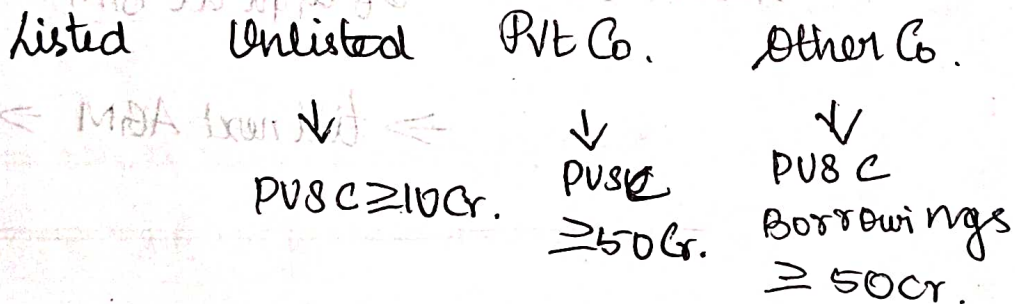 Listed Unlisted Pvt Co. Other Co.
↓ ↓ ↓
PUSC ≥ 10 Cr. PUSC ≥ 50 Cr. PUSC Borrowings ≥ 50 Cr.